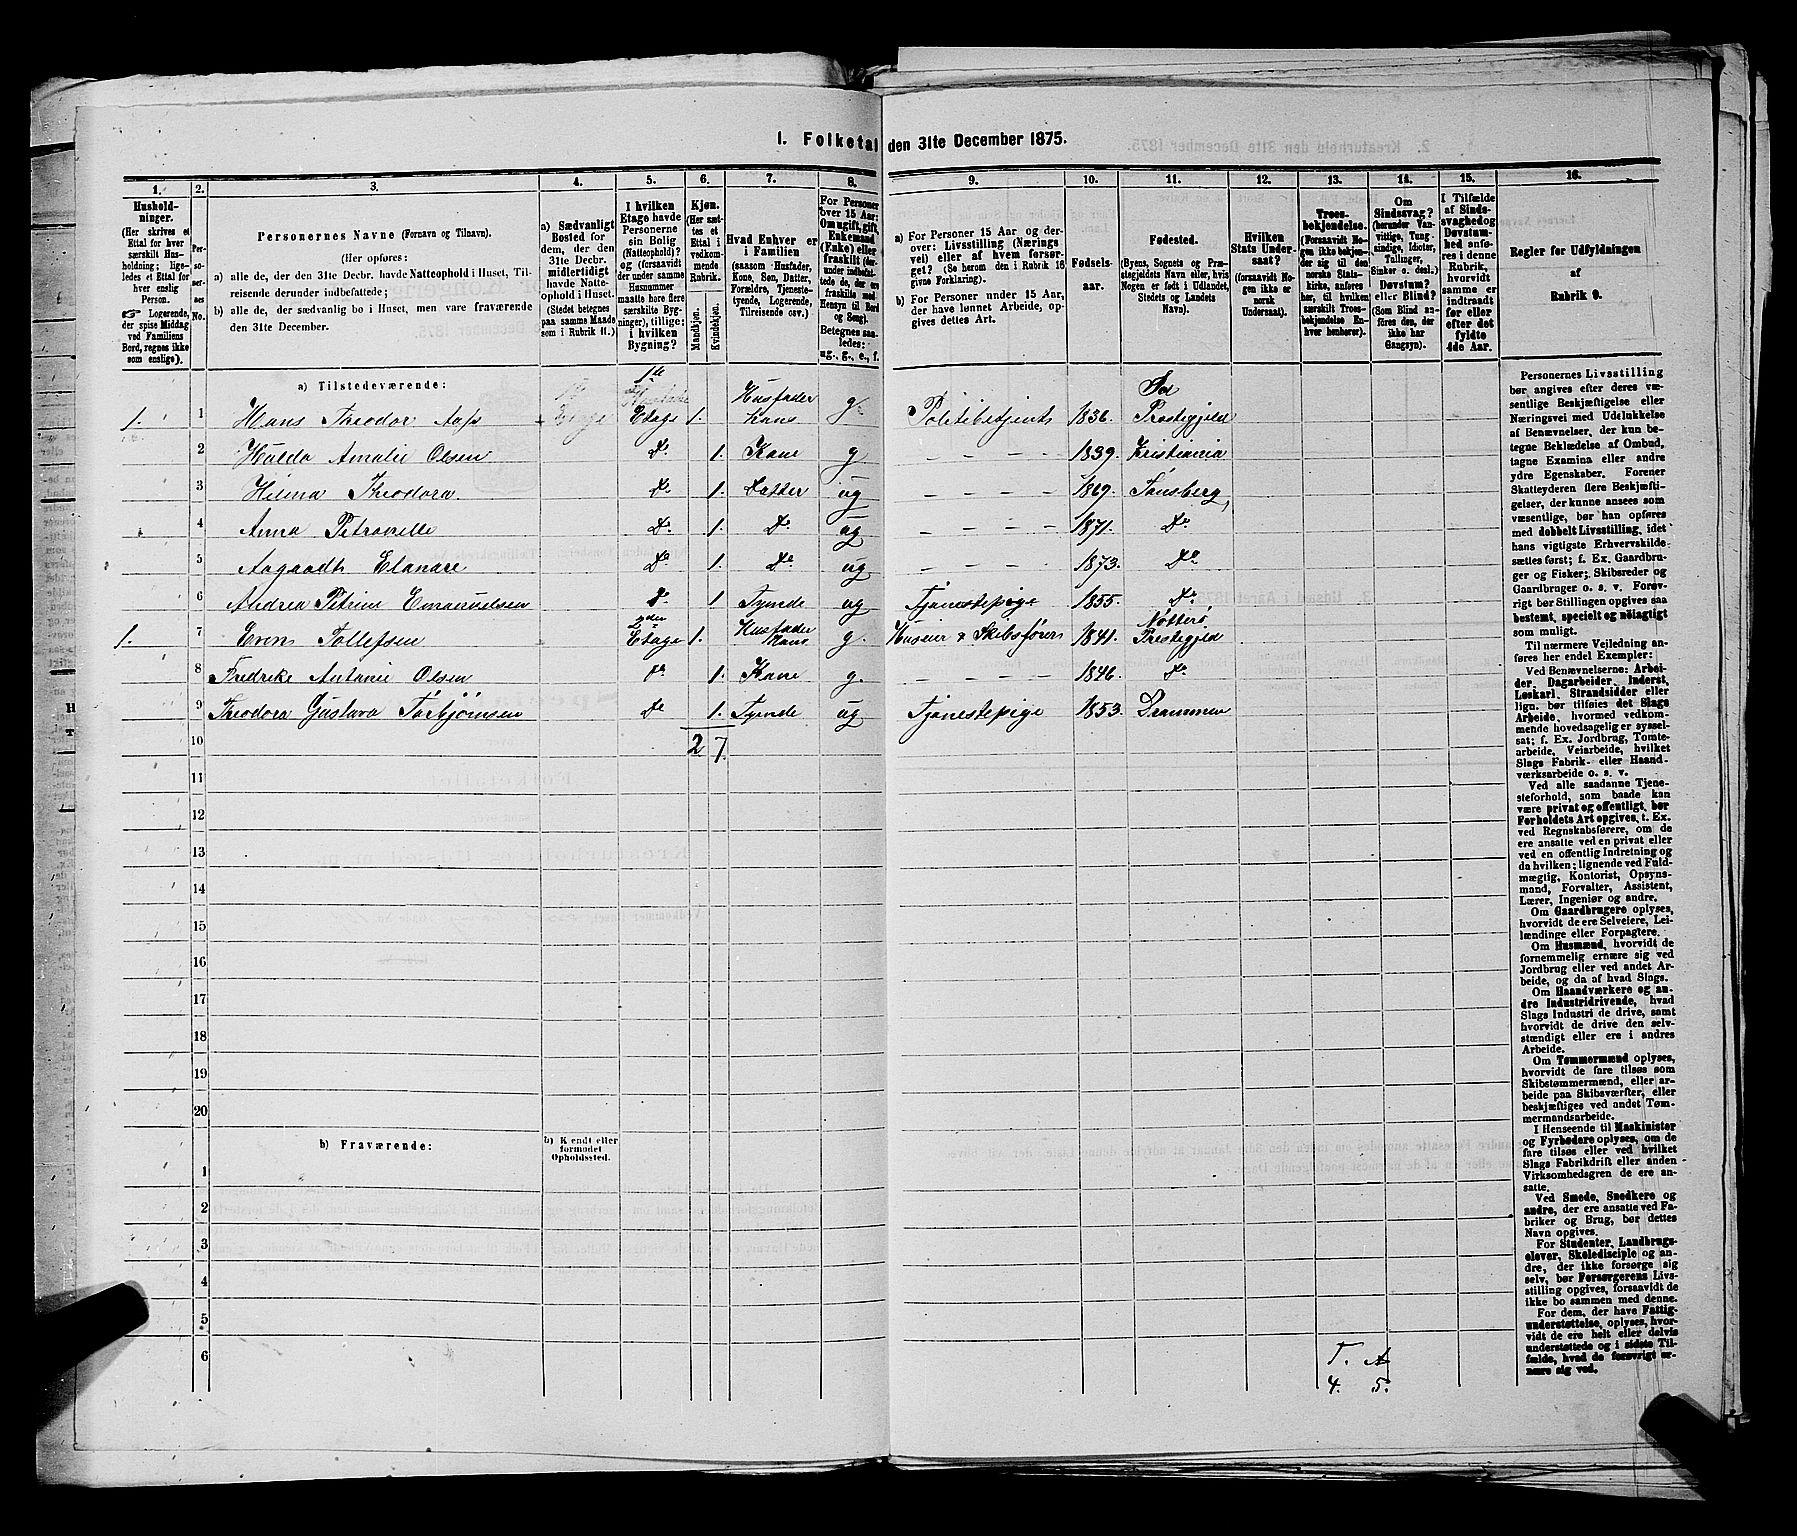 1. Folketal den 31te December 1875.
1. 2. 3. 4. 5. 6. 7. 8. 9. 10. 11. 12. 13. 14. 15. 16.
Husholdninger.
(Her skrives et Ettal for hver særskilt Husholdning; ligeledes et Ettal for hver enslig Person.
☞ Logerende, der spise Middag ved Familiens Bord, regnes ikke som enslige).
Personernes No.
Personernes Navne (Fornavn og Tilnavn).
(Her opføres:
a) alle de, der den 31te Decbr. havde Natteophold i Huset, Tilreisende derunder indbefattede;
b) alle de, der sædvanlig bo i Huset, men vare fraværende den 31te December.
a) Sædvanligt Bosted for dem, der den 31te Decbr. midlertidigt havde Natteophold i Huset.
(Stedet betegnes paa samme Maade som i Rubrik 11.)
I hvilken Etage havde Personerne sin Bolig (Natteophold)? og (forsaavidt der under samme Husnummer maatte høre flere særskilte Bygninger), tillige: i hvilken Bygning?
Kjøn.
(Her sættes et Ettal i vedkommende Rubrik.
Mandkjøn.
Kvindekjøn.
Hvad Enhver er i Familien
(saasom Husfader, Kone, Søn, Datter, Forældre, Tjenestetyende, Logerende, Tilreisende osv.)
For Personer over 15 Aar: Om ugift, gift, Enkemand (Enke) eller fraskilt (derunder indbefattede de, der ere fraskilte med Hensyn til Bord og Seng).
Betegnes saaledes: ug., g., e., f.
a) For Personer 15 Aar og derover: Livsstilling (Næringsvei) eller af hvem forsørget? (Se herom den i Rubrik 16 givne Forklaring).
b) For Personer under 15 Aar, der have lønnet Arbeide, opgives dettes Art.
Fødselsaar.
Fødested.
(Byens, Sognets og Præstegjeldets Navn eller, hvis Nogen er født i Udlandet, Stedets og Landets Navn).
Hvilken Stats Undersaat?
(forsaavidt Nogen ikke er norsk Undersaat).
Troesbekjendelse.
(Forsaavidt Nogen ikke bekjender sig til den norske Statskirke, anføres her, til hvilket særskilt Troesbekjendelse Enhver henhører).
Om Sindssvag? (herunder Vanvittige, Tungsindige, Idioter, Tullinger, Sinker o. desl.) Døvstum? eller Blind? (Som Blind anføres den, der ikke har Gangsyn).
I Tilfælde af Sindssvaghed og Døvstumhed anføres i denne Rubrik, hvorvidt samme er indtraadt før eller efter det fyldte 4de Aar.
Regler for Udfyldningen af Rubrik 9.
a) Tilstedeværende:
1. 1 Hans Theodor Aass 1ste Etage 1. Husfader Kone g. Politibetjent 1836. Præstegjeld
2 Hulda Amalie Olsen Do 1. Kone g – – – – 1839. Kristiania
3 Hilma Theodora Do 1. Datter ug – – – – 1869. Tønsberg
4 Anna Petronelle Do 1. Do ug – – – – 1871. Do
5 Aagaadh Elanare Do 1. Do ug – – – – 1873. Do
6 Andrea Petrine Emanuelsen Do 1 Tyende ug Tjenestepige 1855. Do
1. 7 Even Tollefsen 2den Etage 1. Husfader Kone g. Huseier & Skibsfører 1841. Nøtterø Præstegjeld
8 Fredrike Antonie Olsen Do 1. Kone g. – – – – 1846. Do
9 Theodora Gustava Torbjörnsen Do 1. Tyende ug Tjenestepige 1853. Drammen
10 2 7.
11
12
13
14
15
16
17
18
19
20
b) Fraværende: b) Kjendt eller formodet Opholdssted.
1
2
3
4
5
6
T. A
4. 5.
Personernes Livsstilling bør angives efter deres væsentlige Beskjæftigelse eller Næringsvei med Udelukkelse af Benævnelser, der kun betegne Beklædelse af Ombud, tagne Examina eller andre ydre Egenskaber. Forener Skatteyderen flere Beskjæftigelser, der kunne ansees som væsentlige, bør han opføres med dobbelt Livsstilling, idet hans vigtigste Erhvervskilde sættes først; f. Ex. Gaardbruger og Fisker; Skibsreder og Gaardbruger o. s. v. Forøvrigt bør Stillingen opgives saa bestemt, specielt og nøiagtigt som muligt.
Til nærmere Veiledning anføres her endel Exempler:
Ved Benævnelserne: Arbeider, Dagarbeider, Inderst, Løskarl, Strandsidder eller lign. bør tilføies det Slags Arbeide, hvormed vedkommende hovedsagelig er sysselsat; f. Ex. Jordbrug, Tomtearbeide, Veiarbeide, hvilket Slags Fabrik- eller Haandværksarbeide o. s. v.
Ved alle saadanne Tjenesteforhold, som baade kan være privat og offentligt, bør Forholdets Art opgives, t. Ex. ved Regnskabsførere, om de ere ansatte ved en privat eller ved en offentlig Indretning og da hvilken; lignende ved Fuldmægtig, Kontorist, Opsynsmand, Forvalter, Assistent, Lærer, Ingeniør og andre.
Om Gaardbrugere oplyses, hvorvidt de ere Selveiere, Leilændinge eller Forpagtere.
Om Husmænd, hvorvidt de fornemmelig ernære sig ved Jordbrug eller ved andet Arbeide, og da af hvad Slags.
Om Haandværkere og andre Industridrivende, hvad Slags Industri de drive, samt hvorvidt de drive den selvstændigt eller ere i andres Arbeide.
Om Tømmermænd oplyses, hvorvidt de fare tilsøs som Skibstømmermænd, eller arbeide paa Skibsværfter, eller beskjæftiges ved andet Tømmermandsarbeide.
I Henseende til Maskinister og Fyrbødere oplyses, om de fare tilsøs eller ved hvilket Slags Fabrikdrift eller anden Virksomhedsgren de ere ansatte.
Ved Smede, Snedkere og andre, der ere ansatte ved Fabriker og Brug, bør dettes Navn opgives.
For Studenter, Landbrugselever, Skoledisciple og andre, der ikke forsørge sig selv, bør Forsørgerens Livsstilling opgives, forsaavidt de ikke bo sammen med denne.
For dem, der have Fattigunderstøttelse, oplyses, hvorvidt de ere helt eller delvis understøttede og i sidste Tilfælde, hvad de forøvrigt ernære sig ved.